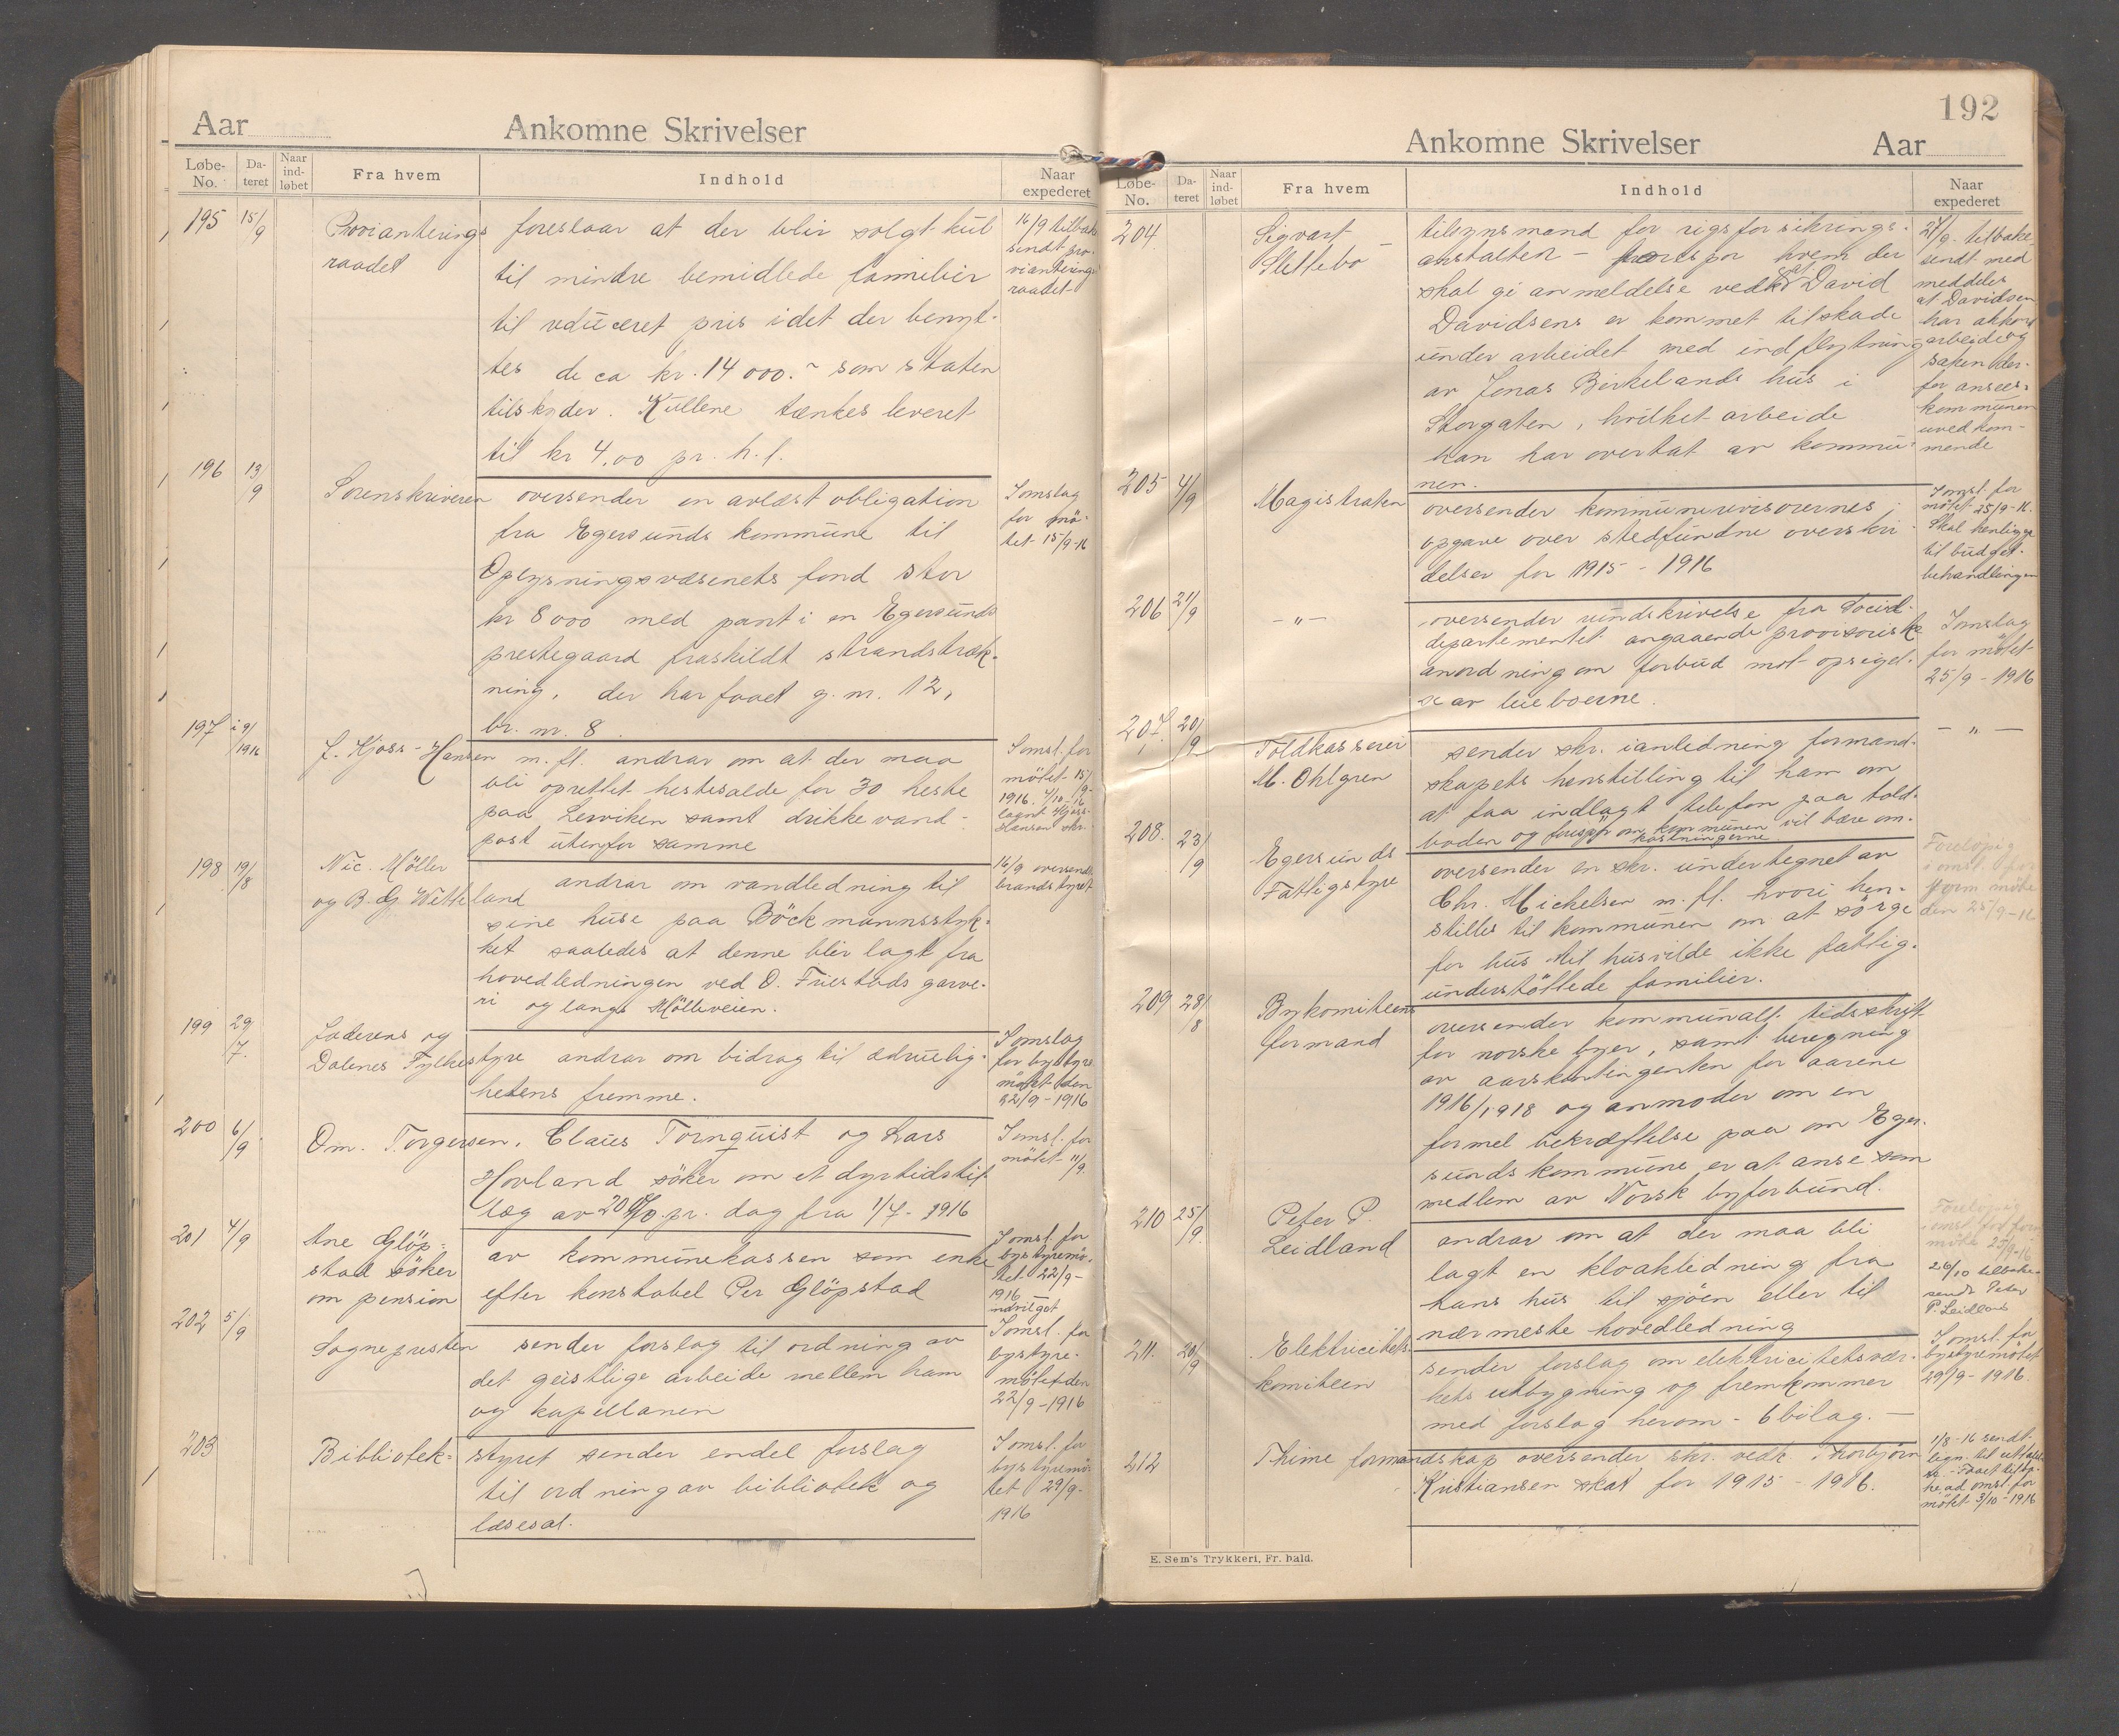 Aar
Ankomne Skrivelser
Løbe-No.
Dateret
Naar indløbet
Fra hvem
Indhold
Naar expederet
195
15/9
Provianterings
raadet
foreslaar at der blir solgt kul
til mindre bemidlede familier
til reduceret pris idet der benyt-
tes de ca kr. 14000.- som staten
tilskyder. Kullene tænkes leveret
til kr 4,00 pr. h.l.
16/9 tilbake
sendt pro-
vianterings
raadet
196
13/9
Sorenskriveren
oversender en avlæst obligation
fra Egersunds kommune til
Oplysningsvæsenets fond stor
kr 8000 med pant i en Egersunds
prestegaard fraskildt strandstræk-
ning, der har faaet g. nr. 12,
br. nr. 8.
I omslag
for mö-
tet 15/9-16
197
1/9 1916
J. Kjoss-Hansen
m. fl. andrar om at der maa
bli oprettet hestestalde for 30 heste
paa Lerviken samt drikkevand-
post utenfor samme
I omsl. for
mötet 15/9-
1916. 4/10-16
Hansen skr.
198
19/8
Nic. Möller
og B. G. Wetteland
andrar om vandledning til
sine huse paa Böckmannsstyk-
ket saaledes at denne blir lagt fra
hovedledningen ved O. Friestads garve-
ri og langs Mölleveien.
16/9 oversendt
brandstyret
199
29/7.
Jæderens og
Dalenes Fylkesstyre
andrar om bidrag til ædruelig-
hetens fremme.
I omslag
for bystyre
mötet den
22/9-1916
200
6/9
Om. Torgersen, Claus Tornquist og Lars
Hovland söker om et dyrtidstil-
læg av 20% pr. dag fra 1/7-1916
I omsl. for
mötet 11/9.
201
4/9
Ane Glöp-
stad söker
om pension
av kommunekassen som enke
efter konstabel Per Glöpstad
I omsl. for
bystyremö-
tet 22/9-
1916
indvilget
202
5/9
Sognepresten
sender forslag til ordning av
det geistlige arbeide mellem ham
og kapellanen
I omsl. for
bystyre-
mötet den
22/9-1916
203
Bibliotek-
styret sender endel forslag
til ordning av bibliotek og
læsesal.
I omsl. for
bystyremö-
tet 29/9-
1916
192
Ankomne Skrivelser
Aar
Løbe-No.
Dateret
Naar indløbet
Fra hvem
Indhold
Naar expederet
204.
Sigvart
Slettebo
tilsynsmand for rigsforsikrings-
anstalten - forespør hvem der
skal gi anmeldelse vedk at David
Davidsens er kommet tilskade
under arbeidet med indflytning
av Jonas Birkelands hus i
Storgaten, hvilket arbeide
han har overtat av kommu-
nen.
27/9. tilbake-
sendt med
meddelse
at Davidsen
har akkord
arbeide og
saken der-
for ansees
kommunen
uvedkom-
mende
205
4/9
Magistraten
oversender kommunerevisorernes
opgave over stedfundne overskri-
delser for 1915-1916
I omsl. for
mötet 25/9-16.
Skal henligge
til budget-
behandlingen
206
21/9
- " -
oversender rundskrivelse fra Social-
departementet angaaende provisorisk
anordning om forbud mot opsigel-
se av leieboerne.
I omslag
for mötet
25/9-1916
207.
20/9
Toldkasserer
M. Ohlgren
sender skr. i anledning formand-
skapets henstilling til ham om
at faa indlagt telefon paa told-
boden og forespør om kommunen vil bære om-
kostningerne
- " -
208.
23/9
Egersunds
Fattigstyre
oversender en skr. undertegnet av
Chr. Michelsen m. fl. hvori hen-
stilles til kommunen om at sörge
for hus til husvilde ikke fattig-
understöttede familier.
Foreløpig
i omsl. for
form. möte
den 25/9-16
209
28/8
Bykomiteens
formand
oversender kommunalt tidsskrift
for norske byer, samt beregning
av aarskontingenten for aarene
1916/1918 og anmoder om en
formel bekræftelse paa om Eger-
sunds kommune er at anse som
medlem av Norsk byforbund.
210
25/9.
Peter P.
Leidland
andrar om at der maa bli
lagt en kloakledning fra
hans hus til sjöen eller til
nærmeste hovedledning
Foreløpig
i omsl. for form
möte 25/9-16
26/10 tilbake-
sendt Peter
P. Leidland
211.
20/9
Elektricitets-
komiteen
sender forslag om elektricitetsvær-
kets utbygning og fremkommer
med forslag herom - 6 bilag. -
I omsl. for
bystyremötet
29/9-1916.
212
Thime formandskap oversender skr. vedk Thorbjörn
Kristiansen skat for 1915-1916.
1/8-16 sendt
lign. til uttalel-
se. - Faaet tilb-
ake ad omsl. for
mötet 3/10-1916
E. Sem's Trykkeri, Fr. hald.